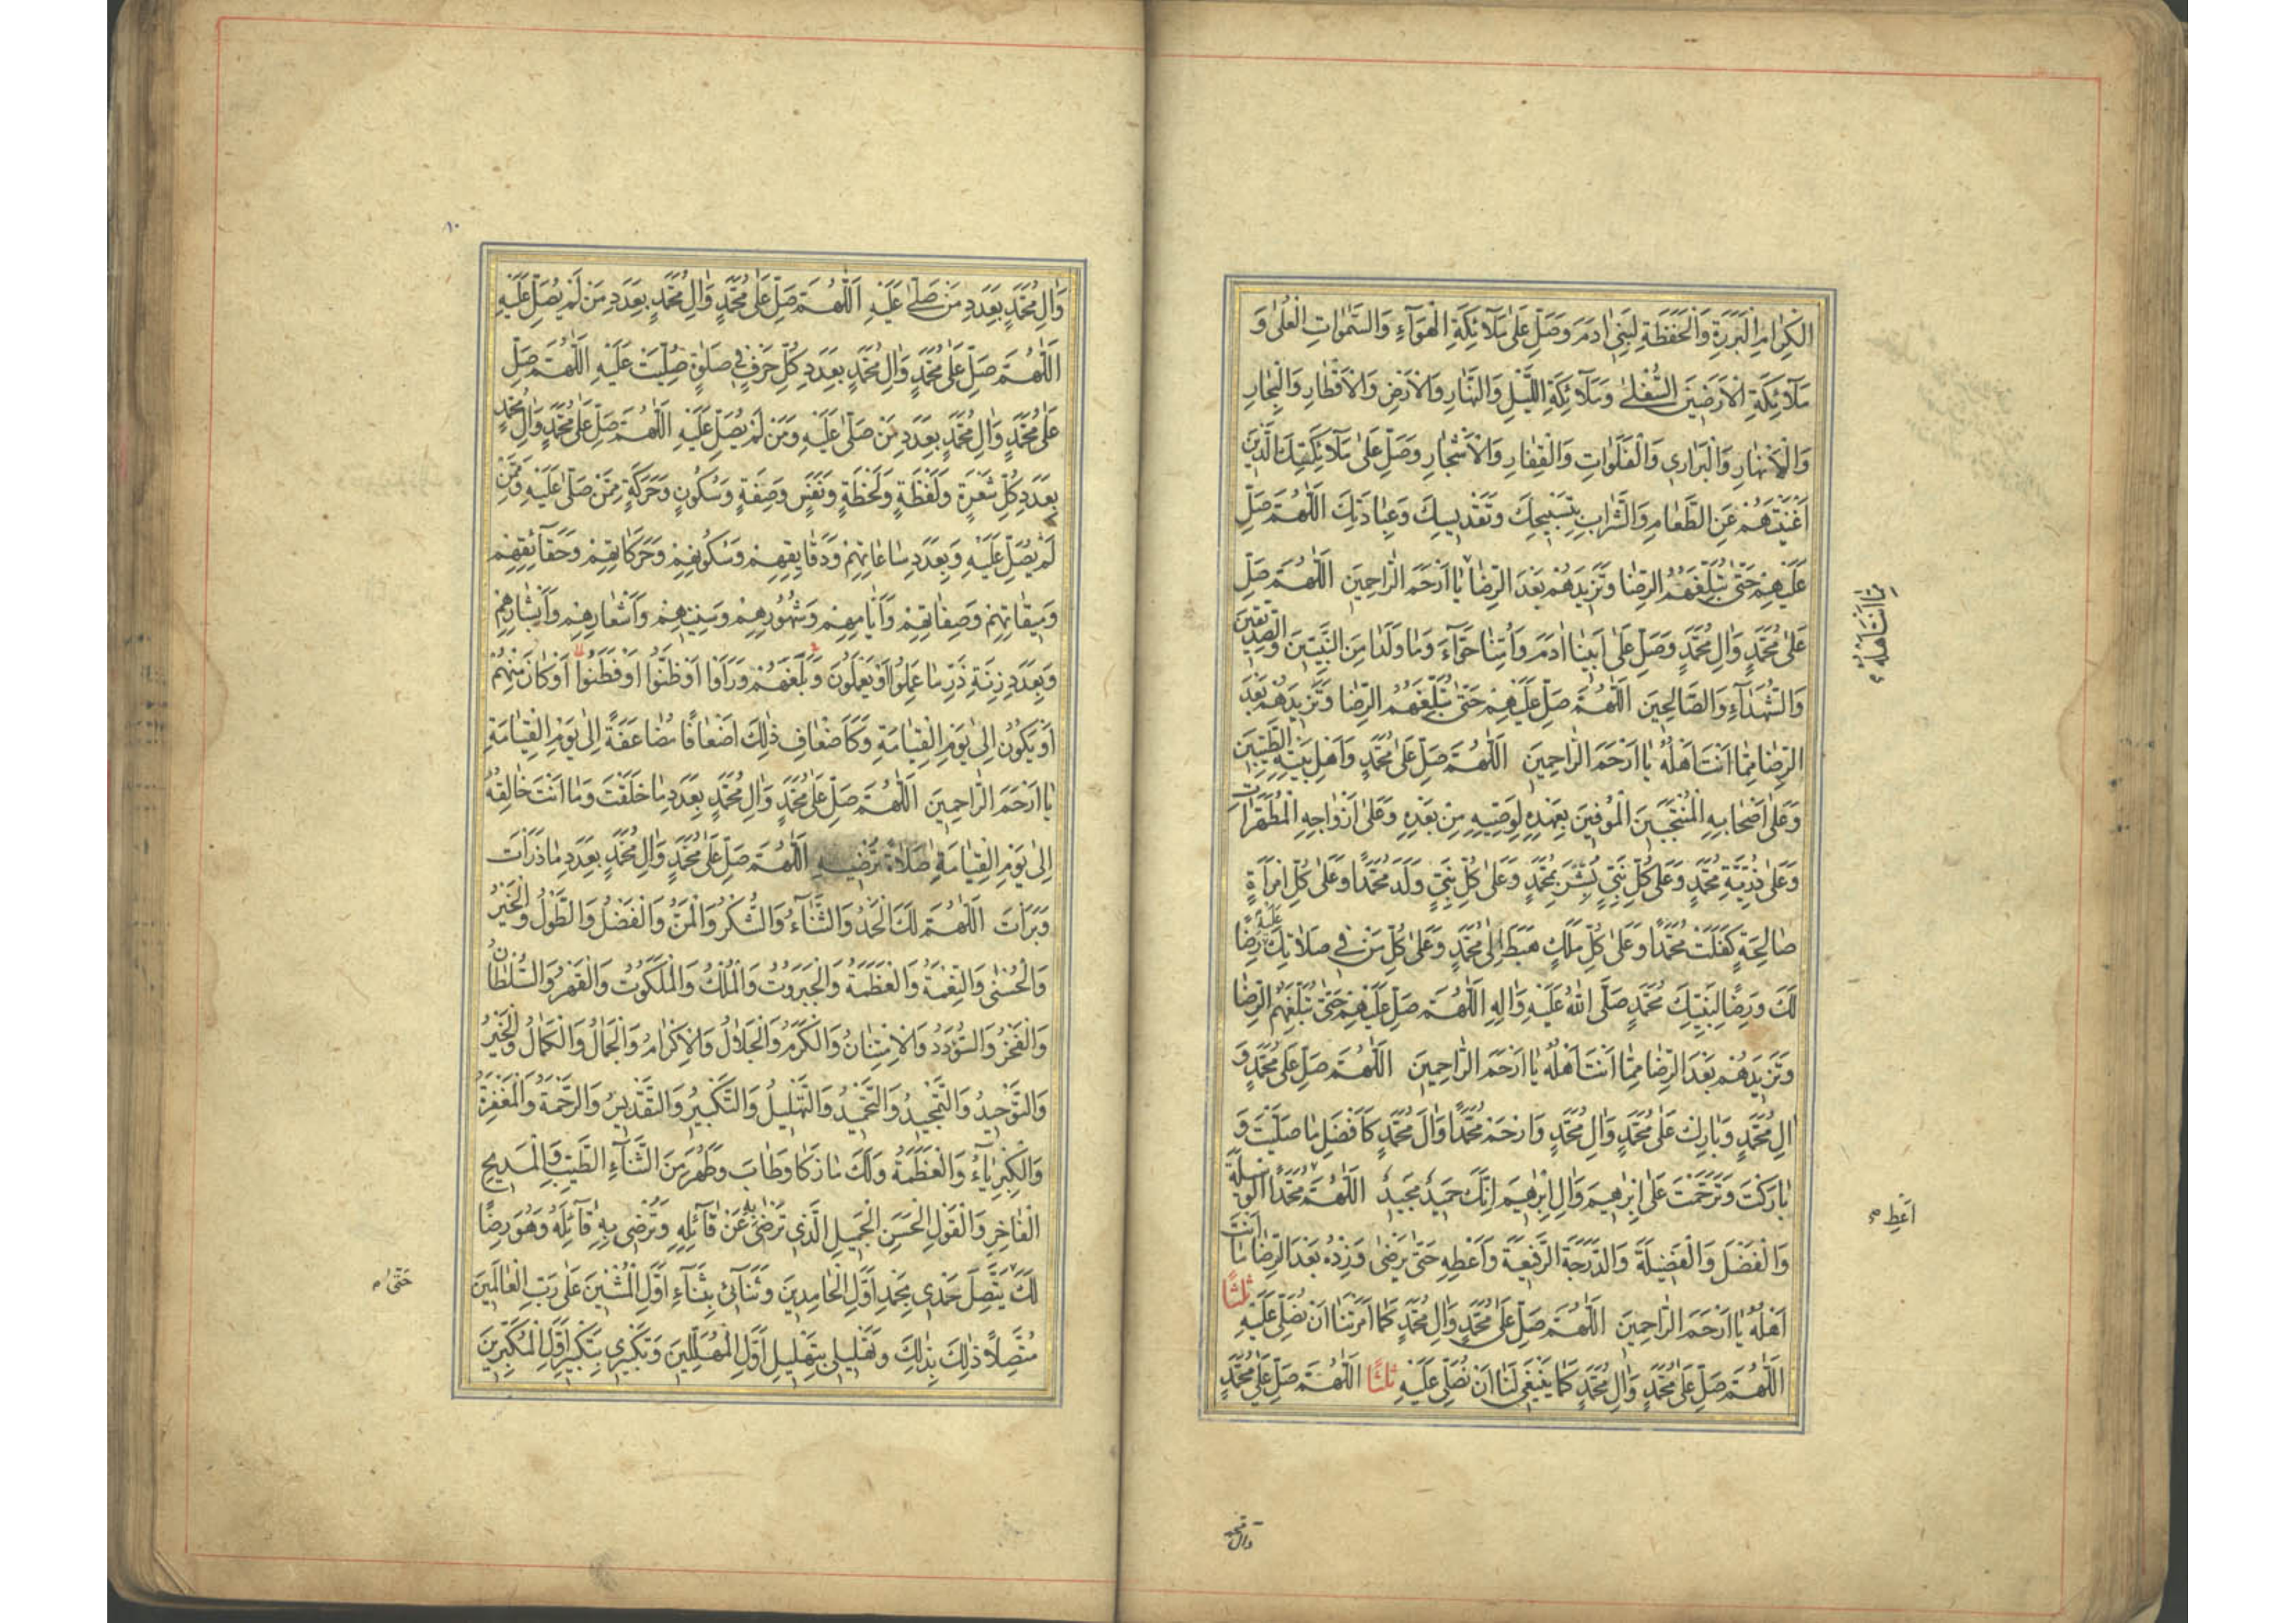 الْكِرَامِ الْبَرَرَةِ وَالْحَفَظَةِ لِبَنِي اٰدَمَ وَصَلِّ عَلٰى مَلَآئِكَةِ الْهَوَآءِ وَالسَّمٰوَاتِ الْعُلٰى وَ
مَلَآئِكَةِ الْاَرَضِينَ السُّفْلٰى وَمَلَآئِكَةِ اللَّيْلِ وَالنَّهَارِ وَالْاَرْضِ وَالْاَقْطَارِ وَالْبِحَارِ
وَالْاَنْهَارِ وَالْبَرَارِي وَالْفَلَوَاتِ وَالْقِفَارِ وَالْاَشْجَارِ وَصَلِّ عَلٰى مَلَآئِكَتِكَ الَّذِينَ
اَغْنَيْتَهُمْ عَنِ الطَّعَامِ وَالشَّرَابِ بِتَسْبِيحِكَ وَتَقْدِيسِكَ وَعِبَادَتِكَ اَللّٰهُمَّ صَلِّ
عَلَيْهِمْ حَتّٰى تُبَلِّغَهُمُ الرِّضَا وَتَزِيدَهُمْ بَعْدَ الرِّضَا يَا اَرْحَمَ الرَّاحِمِينَ اَللّٰهُمَّ صَلِّ
مِمَّا اَنْتَ اَهْلُهُ
عَلٰى مُحَمَّدٍ وَاٰلِ مُحَمَّدٍ وَصَلِّ عَلٰى اَبِينَا اٰدَمَ وَاُمِّنَا حَوَّآءَ وَمَا وَلَدَا مِنَ النَّبِيِّينَ وَالصِّدِّيقِينَ
وَالشُّهَدَآءِ وَالصَّالِحِينَ اَللّٰهُمَّ صَلِّ عَلَيْهِمْ حَتّٰى تُبَلِّغَهُمُ الرِّضَا وَتَزِيدَهُمْ بَعْدَ
الرِّضَا مِمَّا اَنْتَ اَهْلُهُ يَا اَرْحَمَ الرَّاحِمِينَ اَللّٰهُمَّ صَلِّ عَلٰى مُحَمَّدٍ وَاَهْلِ بَيْتِهِ الطَّيِّبِينَ
وَعَلٰى اَصْحَابِهِ الْمُنْتَجَبِينَ الْمُوفِينَ بِعَهْدِهِ لِوَصِيِّهِ مِنْ بَعْدِهِ وَعَلٰى اَزْوَاجِهِ الْمُطَهَّرَاتِ
وَعَلٰى ذُرِّيَّةِ مُحَمَّدٍ وَعَلٰى كُلِّ نَبِيٍّ بَشَّرَ بِمُحَمَّدٍ وَعَلٰى كُلِّ نَبِيٍّ وَلَدَ مُحَمَّدًا وَعَلٰى كُلِّ امْرَاَةٍ
صَالِحَةٍ كَفَلَتْ مُحَمَّدًا وَعَلٰى كُلِّ مَلَكٍ هَبَطَ اِلٰى مُحَمَّدٍ وَعَلٰى كُلِّ مَنْ فِي صَلَاتِكَ عَلَيْهِ رِضًا
لَكَ وَرِضًا لِنَبِيِّكَ مُحَمَّدٍ صَلَّى اللّٰهُ عَلَيْهِ وَاٰلِهِ اَللّٰهُمَّ صَلِّ عَلَيْهِمْ حَتّٰى تُبَلِّغَهُمُ الرِّضَا
وَتَزِيدَهُمْ بَعْدَ الرِّضَا مِمَّا اَنْتَ اَهْلُهُ يَا اَرْحَمَ الرَّاحِمِينَ اَللّٰهُمَّ صَلِّ عَلٰى مُحَمَّدٍ وَ
اٰلِ مُحَمَّدٍ وَبَارِكْ عَلٰى مُحَمَّدٍ وَاٰلِ مُحَمَّدٍ وَارْحَمْ مُحَمَّدًا وَاٰلَ مُحَمَّدٍ كَاَفْضَلِ مَا صَلَّيْتَ وَ
بَارَكْتَ وَتَرَحَّمْتَ عَلٰى اِبْرٰهِيمَ وَاٰلِ اِبْرٰهِيمَ اِنَّكَ حَمِيدٌ مَجِيدٌ اَللّٰهُمَّ مُحَمَّدًا الْوَسِيلَةَ
اَعْطِ
وَالْفَضْلَ وَالْفَضِيلَةَ وَالدَّرَجَةَ الرَّفِيعَةَ وَاَعْطِهِ حَتّٰى يَرْضٰى وَزِدْهُ بَعْدَ الرِّضَا مَا اَنْتَ
اَهْلُهُ يَا اَرْحَمَ الرَّاحِمِينَ اَللّٰهُمَّ صَلِّ عَلٰى مُحَمَّدٍ وَاٰلِ مُحَمَّدٍ كَمَا اَمَرْتَنَا اَنْ نُصَلِّيَ عَلَيْهِ ثلثًا
اَللّٰهُمَّ صَلِّ عَلٰى مُحَمَّدٍ وَاٰلِ مُحَمَّدٍ كَمَا يَنْبَغِي لَنَا اَنْ نُصَلِّيَ عَلَيْهِ ثلثًا اَللّٰهُمَّ صَلِّ عَلٰى مُحَمَّدٍ
وال محمد
١٠
وَاٰلِ مُحَمَّدٍ بِعَدَدِ مَنْ صَلّٰى عَلَيْهِ اَللّٰهُمَّ صَلِّ عَلٰى مُحَمَّدٍ وَاٰلِ مُحَمَّدٍ بِعَدَدِ مَنْ لَمْ يُصَلِّ عَلَيْهِ
اَللّٰهُمَّ صَلِّ عَلٰى مُحَمَّدٍ وَاٰلِ مُحَمَّدٍ بِعَدَدِ كُلِّ حَرْفٍ فِي صَلٰوةٍ صُلِّيَتْ عَلَيْهِ اَللّٰهُمَّ صَلِّ
عَلٰى مُحَمَّدٍ وَاٰلِ مُحَمَّدٍ بِعَدَدِ مَنْ صَلّٰى عَلَيْهِ وَمَنْ لَمْ يُصَلِّ عَلَيْهِ اَللّٰهُمَّ صَلِّ عَلٰى مُحَمَّدٍ وَاٰلِ مُحَمَّدٍ
بِعَدَدِ كُلِّ شَعْرَةٍ وَلَفْظَةٍ وَلَحْظَةٍ وَنَفَسٍ وَصِفَةٍ وَسُكُونٍ وَحَرَكَةٍ مِمَّنْ صَلّٰى عَلَيْهِ وَمِمَّنْ
لَمْ يُصَلِّ عَلَيْهِ وَبِعَدَدِ سَاعَاتِهِمْ وَدَقَايِقِهِمْ وَسُكُونِهِمْ وَحَرَكَاتِهِمْ وَحَقَآئِقِهِمْ
وَمِيقَاتِهِمْ وَصِفَاتِهِمْ وَاَيَّامِهِمْ وَشُهُورِهِمْ وَسِنِيهِمْ وَاَشْعَارِهِمْ وَاَبْشَارِهِمْ
وَبِعَدَدِ زِنَةِ ذَرِّ مَا عَمِلُوا اَوْ يَعْمَلُونَ وَبَلَغَهُمْ وَرَاَوْا اَوْ ظَنُّوا اَوْ فَطَنُوا اَوْ كَانَ مِنْهُمْ
اَوْ يَكُونُ اِلٰى يَوْمِ الْقِيَامَةِ وَكَاَضْعَافِ ذٰلِكَ اَضْعَافًا مُضَاعَفَةً اِلٰى يَوْمِ الْقِيَامَةِ
يَا اَرْحَمَ الرَّاحِمِينَ اَللّٰهُمَّ صَلِّ عَلٰى مُحَمَّدٍ وَاٰلِ مُحَمَّدٍ بِعَدَدِ مَا خَلَقْتَ وَمَا اَنْتَ خَالِقُهُ
اِلٰى يَوْمِ الْقِيَامَةِ صَلَاةً تُرْضِيهِ اَللّٰهُمَّ صَلِّ عَلٰى مُحَمَّدٍ وَاٰلِ مُحَمَّدٍ بِعَدَدِ مَا ذَرَاْتَ
وَبَرَاْتَ اَللّٰهُمَّ لَكَ الْحَمْدُ وَالثَّنَآءُ وَالشُّكْرُ وَالْمَنُّ وَالْفَضْلُ وَالطَّوْلُ وَالْخَيْرُ
وَالْحُسْنٰى وَالنِّعْمَةُ وَالْعَظَمَةُ وَالْجَبَرُوتُ وَالْمُلْكُ وَالْمَلَكُوتُ وَالْقَهْرُ وَالسُّلْطَانُ
وَالْفَخْرُ وَالسُّؤْدَدُ وَالْاِمْتِنَانُ وَالْكَرَمُ وَالْجَلَالُ وَالْاِكْرَامُ وَالْجَمَالُ وَالْكَمَالُ وَالْخَيْرُ
وَالتَّوْحِيدُ وَالتَّمْجِيدُ وَالتَّحْمِيدُ وَالتَّهْلِيلُ وَالتَّكْبِيرُ وَالتَّقْدِيسُ وَالرَّحْمَةُ وَالْمَغْفِرَةُ
وَالْكِبْرِيَآءُ وَالْعَظَمَةُ وَلَكَ مَا زَكَا وَطَابَ وَطَهُرَ مِنَ الثَّنَآءِ الطَّيِّبِ وَالْمَدِيحِ
الْفَاخِرِ وَالْقَوْلِ الْحَسَنِ الْجَمِيلِ الَّذِي تَرْضٰى بِهِ عَنْ قَآئِلِهِ وَتُرْضِي بِهِ قَآئِلَهُ وَهُوَ رِضًا
لَكَ يَتَّصِلَ حَمْدِي بِحَمْدِ اَوَّلِ الْحَامِدِينَ وَثَنَآئِي بِثَنَآءِ اَوَّلِ الْمُثْنِينَ عَلٰى رَبِّ الْعَالَمِينَ
حَتّٰى
مُتَّصِلًا ذٰلِكَ بِذٰلِكَ وَتَهْلِيلِي بِتَهْلِيلِ اَوَّلِ الْمُهَلِّلِينَ وَتَكْبِيرِي بِتَكْبِيرِ اَوَّلِ الْمُكَبِّرِينَ